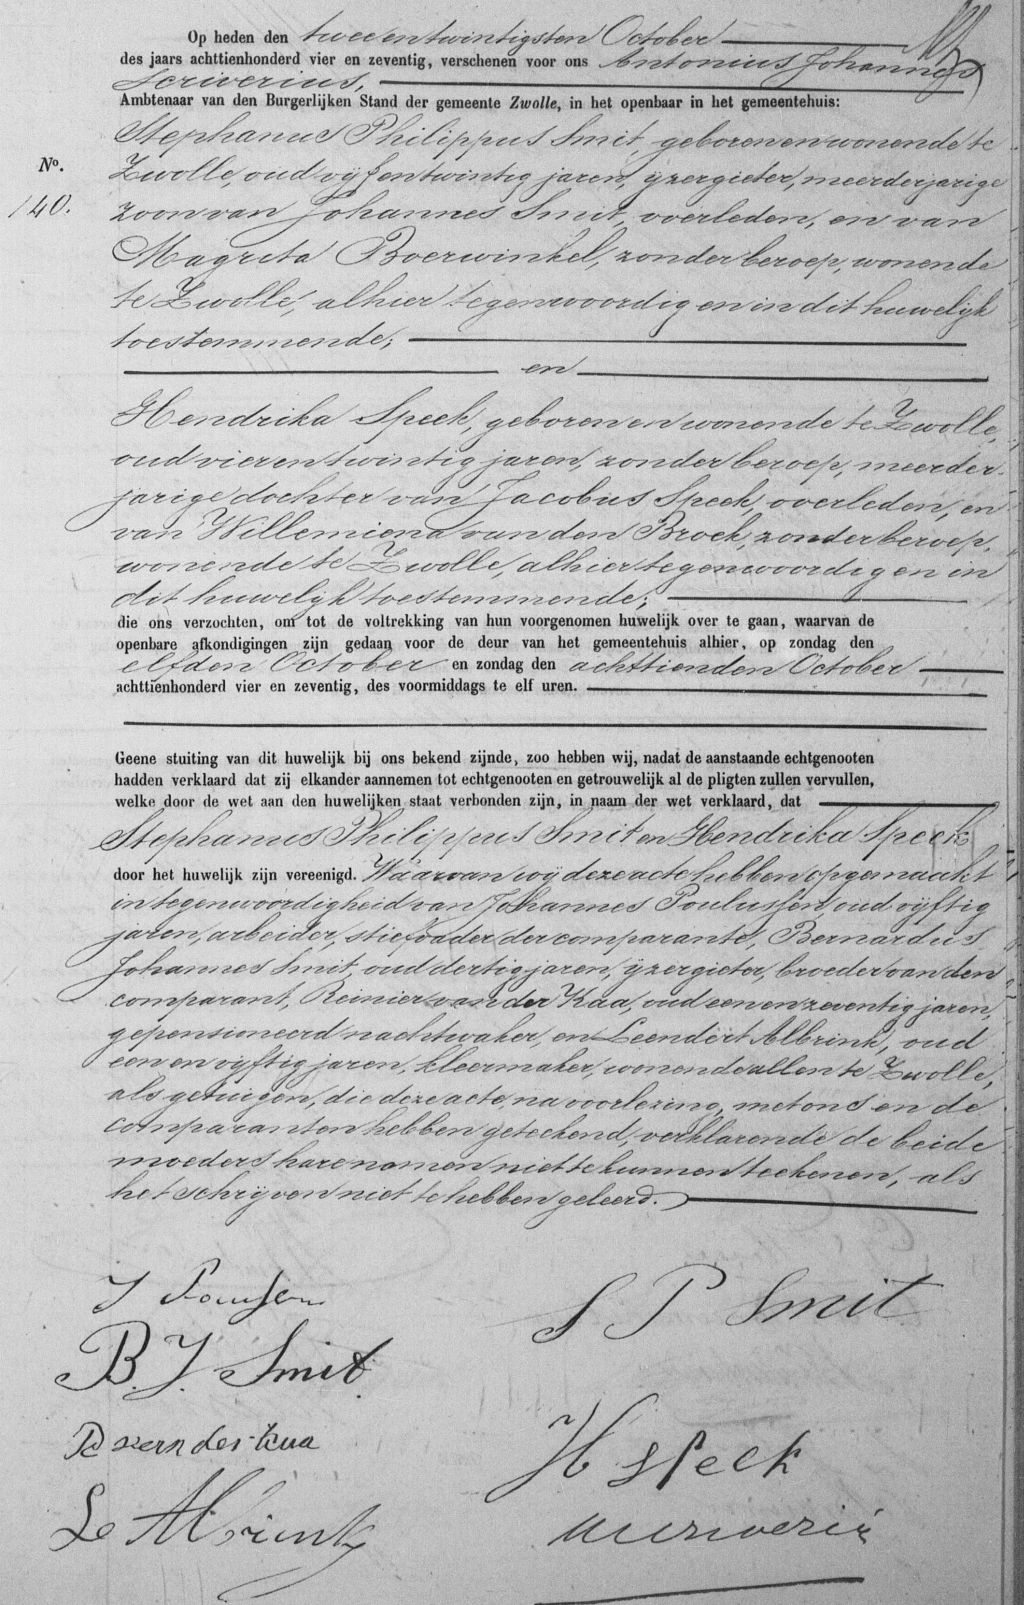 Op heden den tweeentwintigsten October
des jaars achttienhonderd vier en zeventig, verschenen voor ons Antonius Johannes
Scriverius,
Ambtenaar van den Burgerlijken Stand der gemeente Zwolle, in het openbaar in het gemeentehuis:
Stephanus Philippus Smit, geboren en wonende te
No. Zwolle, oud vijfentwintig jaren, ijzergieter, meerderjarige
140. zoon van Johannes Smit, overleden, en van
Magreta Boerwinkel, zonder beroep, wonende
te Zwolle, alhier tegenwoordig en in dit huwelijk
toestemmende;
en
Hendrika Speek, geboren en wonende te Zwolle,
oud vierentwintig jaren, zonder beroep, meerder-
jarige dochter van Jacobus Speek, overleden, en
van Willemiena van den Broek, zonder beroep,
wonende te Zwolle, alhier tegenwoordig en in
dit huwelijk toestemmende;
die ons verzochten, om tot de voltrekking van hun voorgenomen huwelijk over te gaan, waarvan de
openbare afkondigingen zijn gedaan voor de deur van het gemeentehuis alhier, op zondag den
elfden October en zondag den achttienden October
achttienhonderd vier en zeventig, des voormiddags te elf uren.
Geene stuiting van dit huwelijk bij ons bekend zijnde, zoo hebben wij, nadat de aanstaande echtgenooten
hadden verklaard dat zij elkander aannemen tot echtgenooten en getrouwelijk al de pligten zullen vervullen,
welke door de wet aan den huwelijken staat verbonden zijn, in naam der wet verklaard, dat
Stephanus Philippus Smit en Hendrika Speek
door het huwelijk zijn vereenigd. Waarvan wij deze acte hebben opgemaakt
in tegenwoordigheid van Johannes Poulussen, oud vijftig
jaren, arbeider, stiefvader der comparante, Bernardus
Johannes Smit, oud dertig jaren, ijzergieter, broeder van den
comparant, Reinier van der Kaa, oud een en zeventig jaren,
gepensioneerd nachtwaker, en Leendert Albrink, oud
een en vijftig jaren, kleermaker, wonende allen te Zwolle,
als getuigen, die deze acte, na voorlezing, met ons en de
comparanten hebben geteekend, verklarende de beide
moeders hare namen niet te kunnen teekenen, als
het schrijven niet te hebben geleerd.
S P Smit
B. J. Smit
R van der Kaa
H Speek
Le Albrink